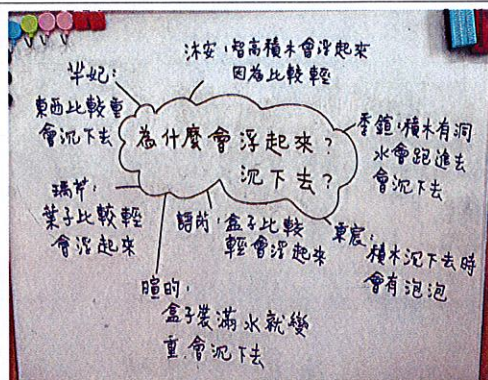 沐安:智高積木會浮起來
因為比較輕
芊妃:
東西比較重
會沉下去
為什麼會浮起來?
沉下去?
積木有洞
水會跑進去
會沉下去
葉子比較輕
會浮起來
詩昀:盒子比較
輕會浮起來
東宸:
積木沉下去時
會有泡泡
暄昀:
盒子裝滿水就變
重.會沉下去